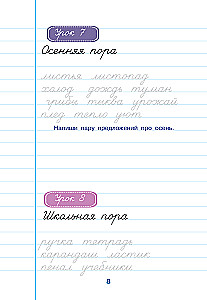 Урок 7
Осенняя пора
листья листопад
холод дождь туман
грибы тыква урожай
плед тепло уют
Напиши пару предложений про осень.
Урок 8
Школьная пора
ручка тетрадь
карандаш ластик
пенал учебники
8